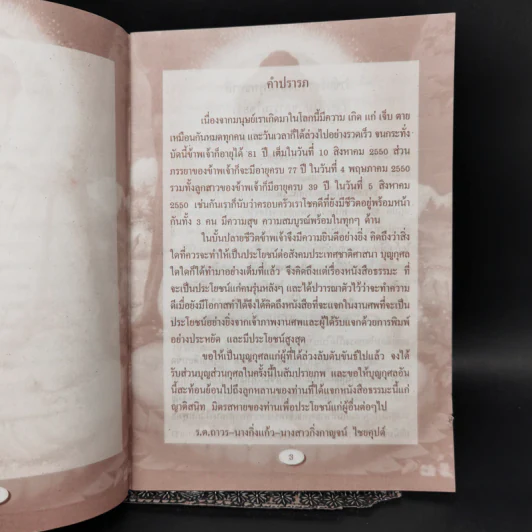 คำปรารภ
เนื่องจากมนุษย์เราเกิดมาในโลกนี้มีความ เกิด แก่ เจ็บ ตาย
เหมือนกันหมดทุกคน และวันเวลาก็ได้ล่วงไปอย่างรวดเร็ว จนกระทั่ง
บัดนี้ข้าพเจ้าก็อายุได้ 81 ปี เต็มในวันที่ 10 สิงหาคม 2550 ส่วน
ภรรยาของข้าพเจ้าก็จะมีอายุครบ 77 ปี ในวันที่ 4 พฤษภาคม 2550
รวมทั้งลูกสาวของข้าพเจ้าก็มีอายุครบ 39 ปี ในวันที่ 5 สิงหาคม
2550 เช่นกันเราก็นับว่าครอบครัวเราโชคดีที่ยังมีชีวิตอยู่พร้อมหน้า
กันทั้ง 3 คน มีความสุข ความสมบูรณ์พร้อมในทุกๆ ด้าน
ในบั้นปลายชีวิตข้าพเจ้าจึงมีความยินดีอย่างยิ่ง คิดถึงว่าสิ่ง
ใดที่ควรจะทำให้เป็นประโยชน์ต่อสังคมประเทศชาติศาสนา บุญกุศล
ใดใดก็ได้ทำมาอย่างเต็มที่แล้ว จึงคิดถึงแต่เรื่องหนังสือธรรมะ ที่
จะเป็นประโยชน์แก่คนรุ่นหลังๆ และได้ปวารณาตัวไว้ว่าจะทำความ
ดีเมื่อยังมีโอกาสทำได้จึงได้คิดถึงหนังสือที่จะแจกในงานศพที่จะเป็น
ประโยชน์อย่างยิ่งจากเจ้าภาพงานศพและผู้ได้รับแจกด้วยการพิมพ์
อย่างประหยัด และมีประโยชน์สูงสุด
ขอให้เป็นบุญกุศลแก่ผู้ที่ได้ล่วงลับดับขันธ์ไปแล้ว จงได้
รับส่วนบุญส่วนกุศลในครั้งนี้ในสัมปรายภพ และขอให้บุญกุศลอัน
นี้สะท้อนย้อนไปถึงลูกหลานของท่านที่ได้แจกหนังสือธรรมะนี้แก่
ญาติสนิท มิตรสหายของท่านเพื่อประโยชน์แก่ผู้อื่นต่อๆไป
ร.ต.ถาวร-นางกิ่งแก้ว-นางสาวกิ่งกาญจน์ ไชยคุปต์
3